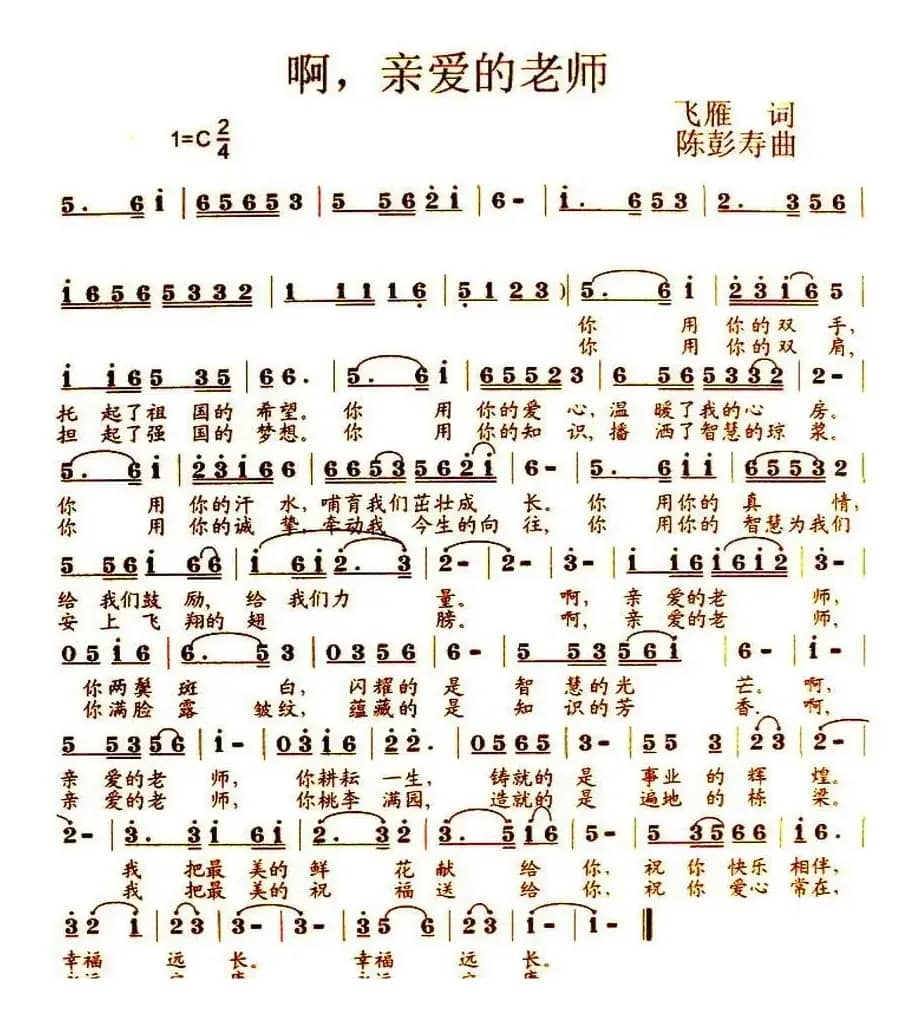 啊，亲爱的老师
飞雁 词
1=C 2/4
陈彭寿曲
5. 6 i | 6 5 6 5 3 | 5 5 6 2 i | 6 - | i. 6 5 3 | 2. 3 5 6 |
i 6 5 6 5 3 3 2 | 1 1 1 1 6 | 5 1 2 3 ) | 5. 6 i | 2 3 i 6 5 |
你 用 你的双 手，
你 用 你的双 肩，
i i 6 5 3 5 | 6 6. | 5. 6 i | 6 5 5 2 3 | 6 5 6 5 3 3 2 | 2 - |
托 起了祖 国的 希望。你 用 你的爱 心，温 暖了我的心 房。
担 起了强 国的 梦想。你 用 你的知 识，播 洒了智慧的琼 浆。
5. 6 i | 2 3 i 6 6 | 6 6 5 3 5 6 2 i | 6 - | 5. 6 i i | 6 5 5 3 2 |
你 用 你的汗 水，哺育我们茁壮成 长。你 用你的 真 情，
你 用 你的诚 挚，牵动我 今生的向 往，你 用你的 智慧为我们
5 5 6 i 6 6 | i 6 i 2. 3 | 2 - | 2 - | 3 - | i i 6 i 6 i 2 | 3 - |
给 我们鼓 励，给 我们力 量。 啊，亲 爱的老 师，
安 上飞 翔的 翅 膀。 啊，亲 爱的老 师，
0 5 i 6 | 6. 5 3 | 0 3 5 6 | 6 - | 5 5 3 5 6 i | 6 - | i - |
你两鬓 斑 白，闪耀的 是 智 慧的光 芒。啊，
你满脸 露 皱纹，蕴藏的 是 知 识的芳 香．啊，
5 5 3 5 6 | i - | 0 3 i 6 | 2 2. | 0 5 6 5 | 3 - | 5 5 3 | 2 3 | 2 - |
亲 爱的老 师，你耕耘 一生，铸就的 是 事业 的 辉 煌。
亲 爱的老 师，你桃李 满园，造就的 是 遍地 的 栋 梁。
2 - | 3. 3 i 6 i | 2. 3 2 | 3. 5 i 6 | 5 - | 5 3 5 6 6 | i 6. |
我 把最 美的 鲜 花 献 给 你，祝 你 快乐 相伴，
我 把最 美的 祝 福 送 给 你，祝 你 爱心 常在，
3 2 i | 2 3 | 3 - | 3 - | 3 5 6 | 2 3 | i - | i - ‖
幸福 远 长。 幸福 远 长。